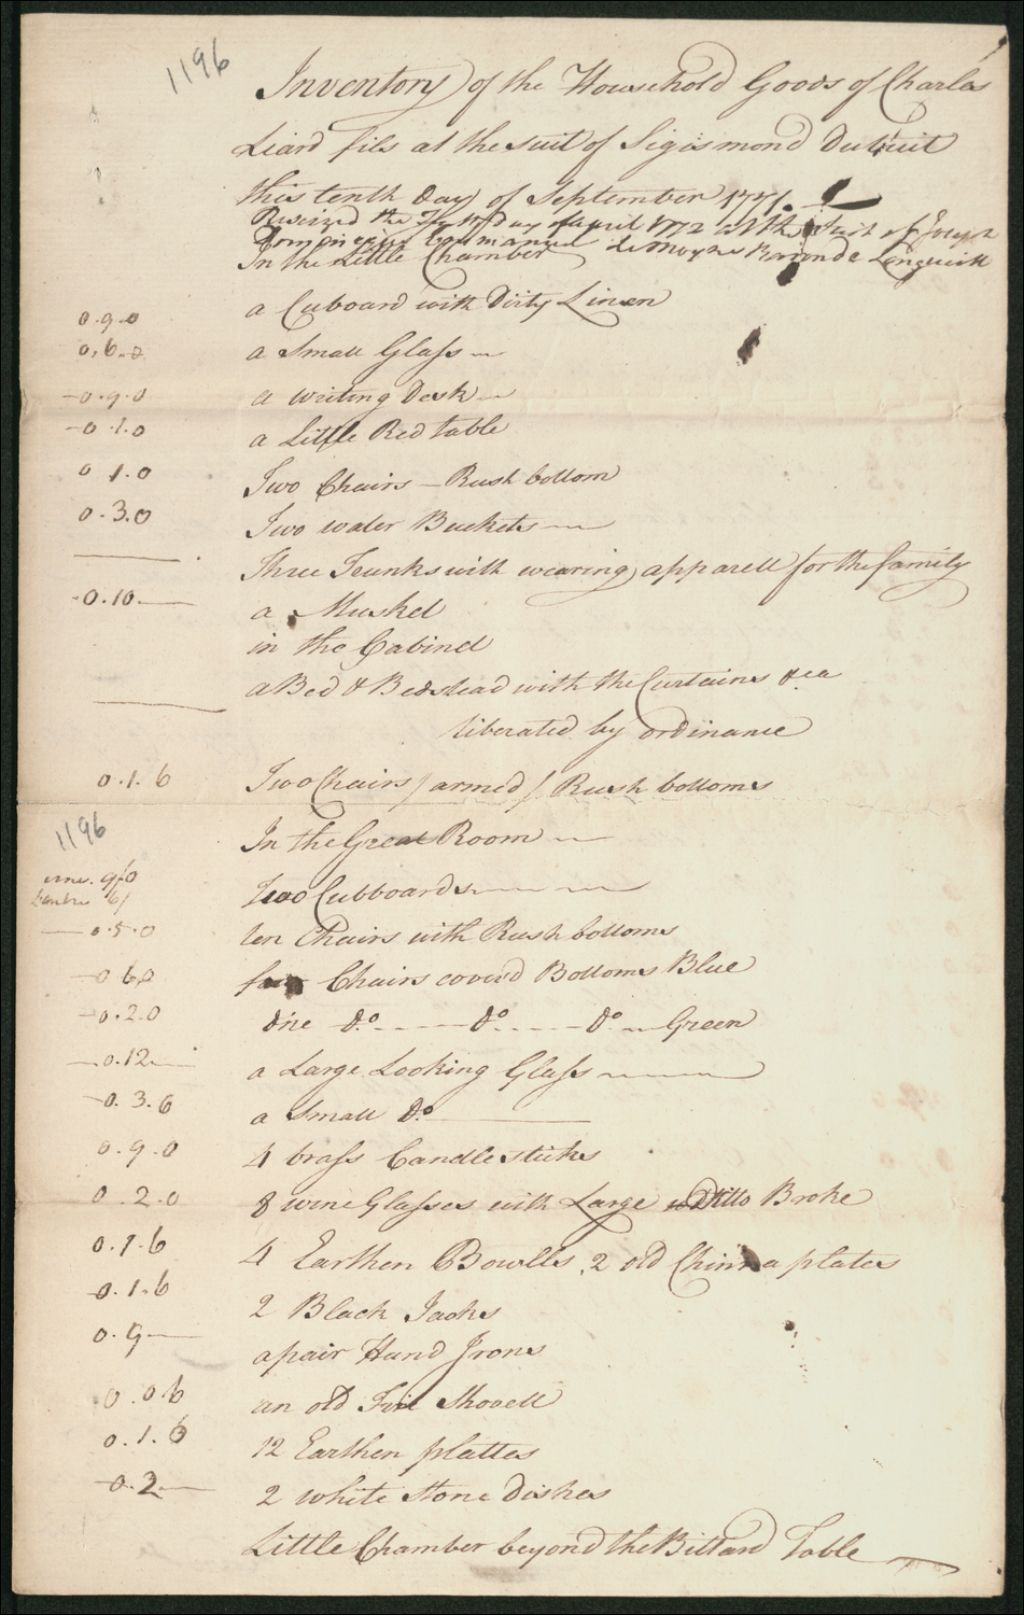 1196
Inventory of the Household Goods of Charles
Liard fils at the suit of Sigismond Dutuit
this tenth Day of September 1771.
Reseized the 17 Day april 1772 at the Suit of
In the Little Chamber
0.9.0 a Cuboard with Dirty Linen
0.6.0 a Small Glass
0.9.0 a writing Desk
0.1.0 a Little Red table
0 1.0 Two Chairs – Rush bottom
0.3.0 Two water Buckets
Three Trunks with wearing apparell for the family
0.10.— a Musket
in the Cabinet
a Bed & Bedstead with the Curtains &ca
liberated by ordinance
0.1.6 Two Chairs / armed / Rush bottoms
1196
In the Great Room
Two Cubboards
0.5.0 ten Chairs with Rush bottoms
0 6.0 four Chairs coverd Bottoms Blue
0.2.0 one Do. Do. Do. Green
0.12 a Large Looking Glass
0.3.6 a Small Do.
0.9.0 4 brass Candlesticks
0.2.0 8 wine Glasses with Large Ditto Broke
0.1.6 4 Earthen Bowlls, 2 old Chinna plates
0.1.6 2 Black Jacks
0.9— a pair Hand Irons
0.06 an old Fire Shovell
0.1.6 12 Earthen plattes
0.2.— 2 white Stone Dishes
Little Chamber beyond the Billard Table